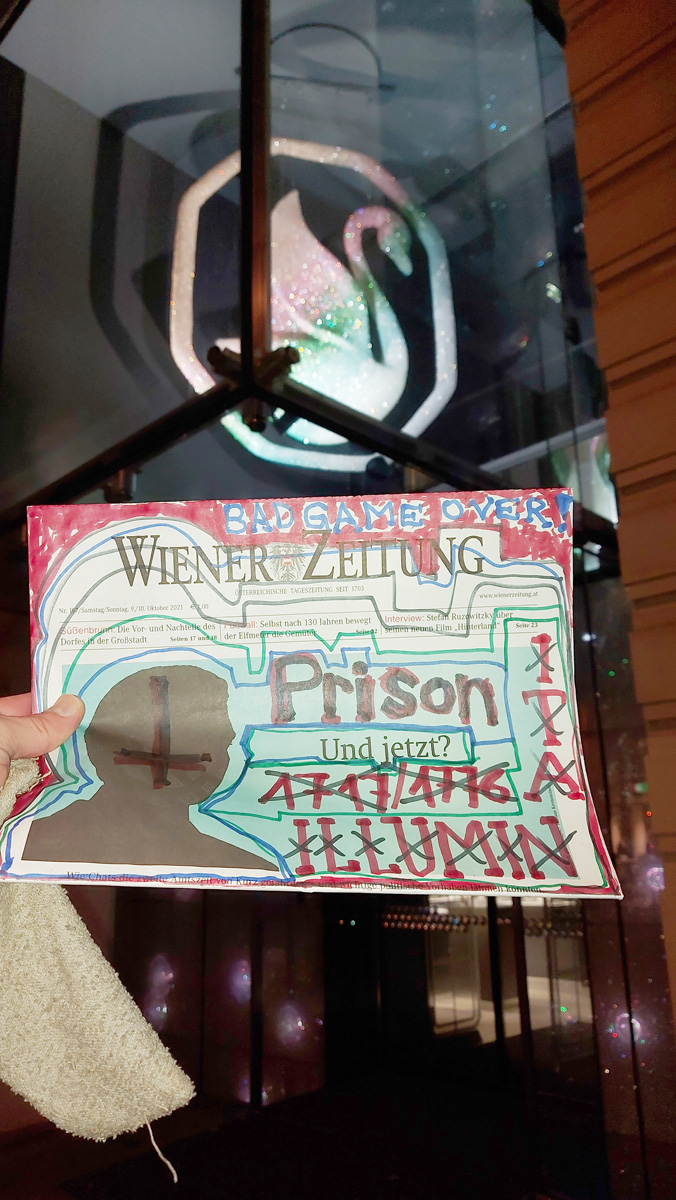 BAD GAME OVER!
WIENER ZEITUNG
ÖSTERREICHISCHE TAGESZEITUNG SEIT 1703
Nr. 197/Samstag/Sonntag, 9./10. Oktober 2021
www.wienerzeitung.at
Süßenbrunn: Die Vor- und Nachteile des
Dorfes in der Großstadt Seiten 17 und 18
Selbst nach 130 Jahren bewegt
der Elfmeter die Gemüter
Interview: Stefan Ruzowitzky über
seinen neuen Film „Hinterland“ Seite 23
Prison
Und jetzt?
1717/1776
ILLUMIN
ITA
Wie Chats die zweite Amtszeit von Kurz
politische Vorhaben lähmen könnten